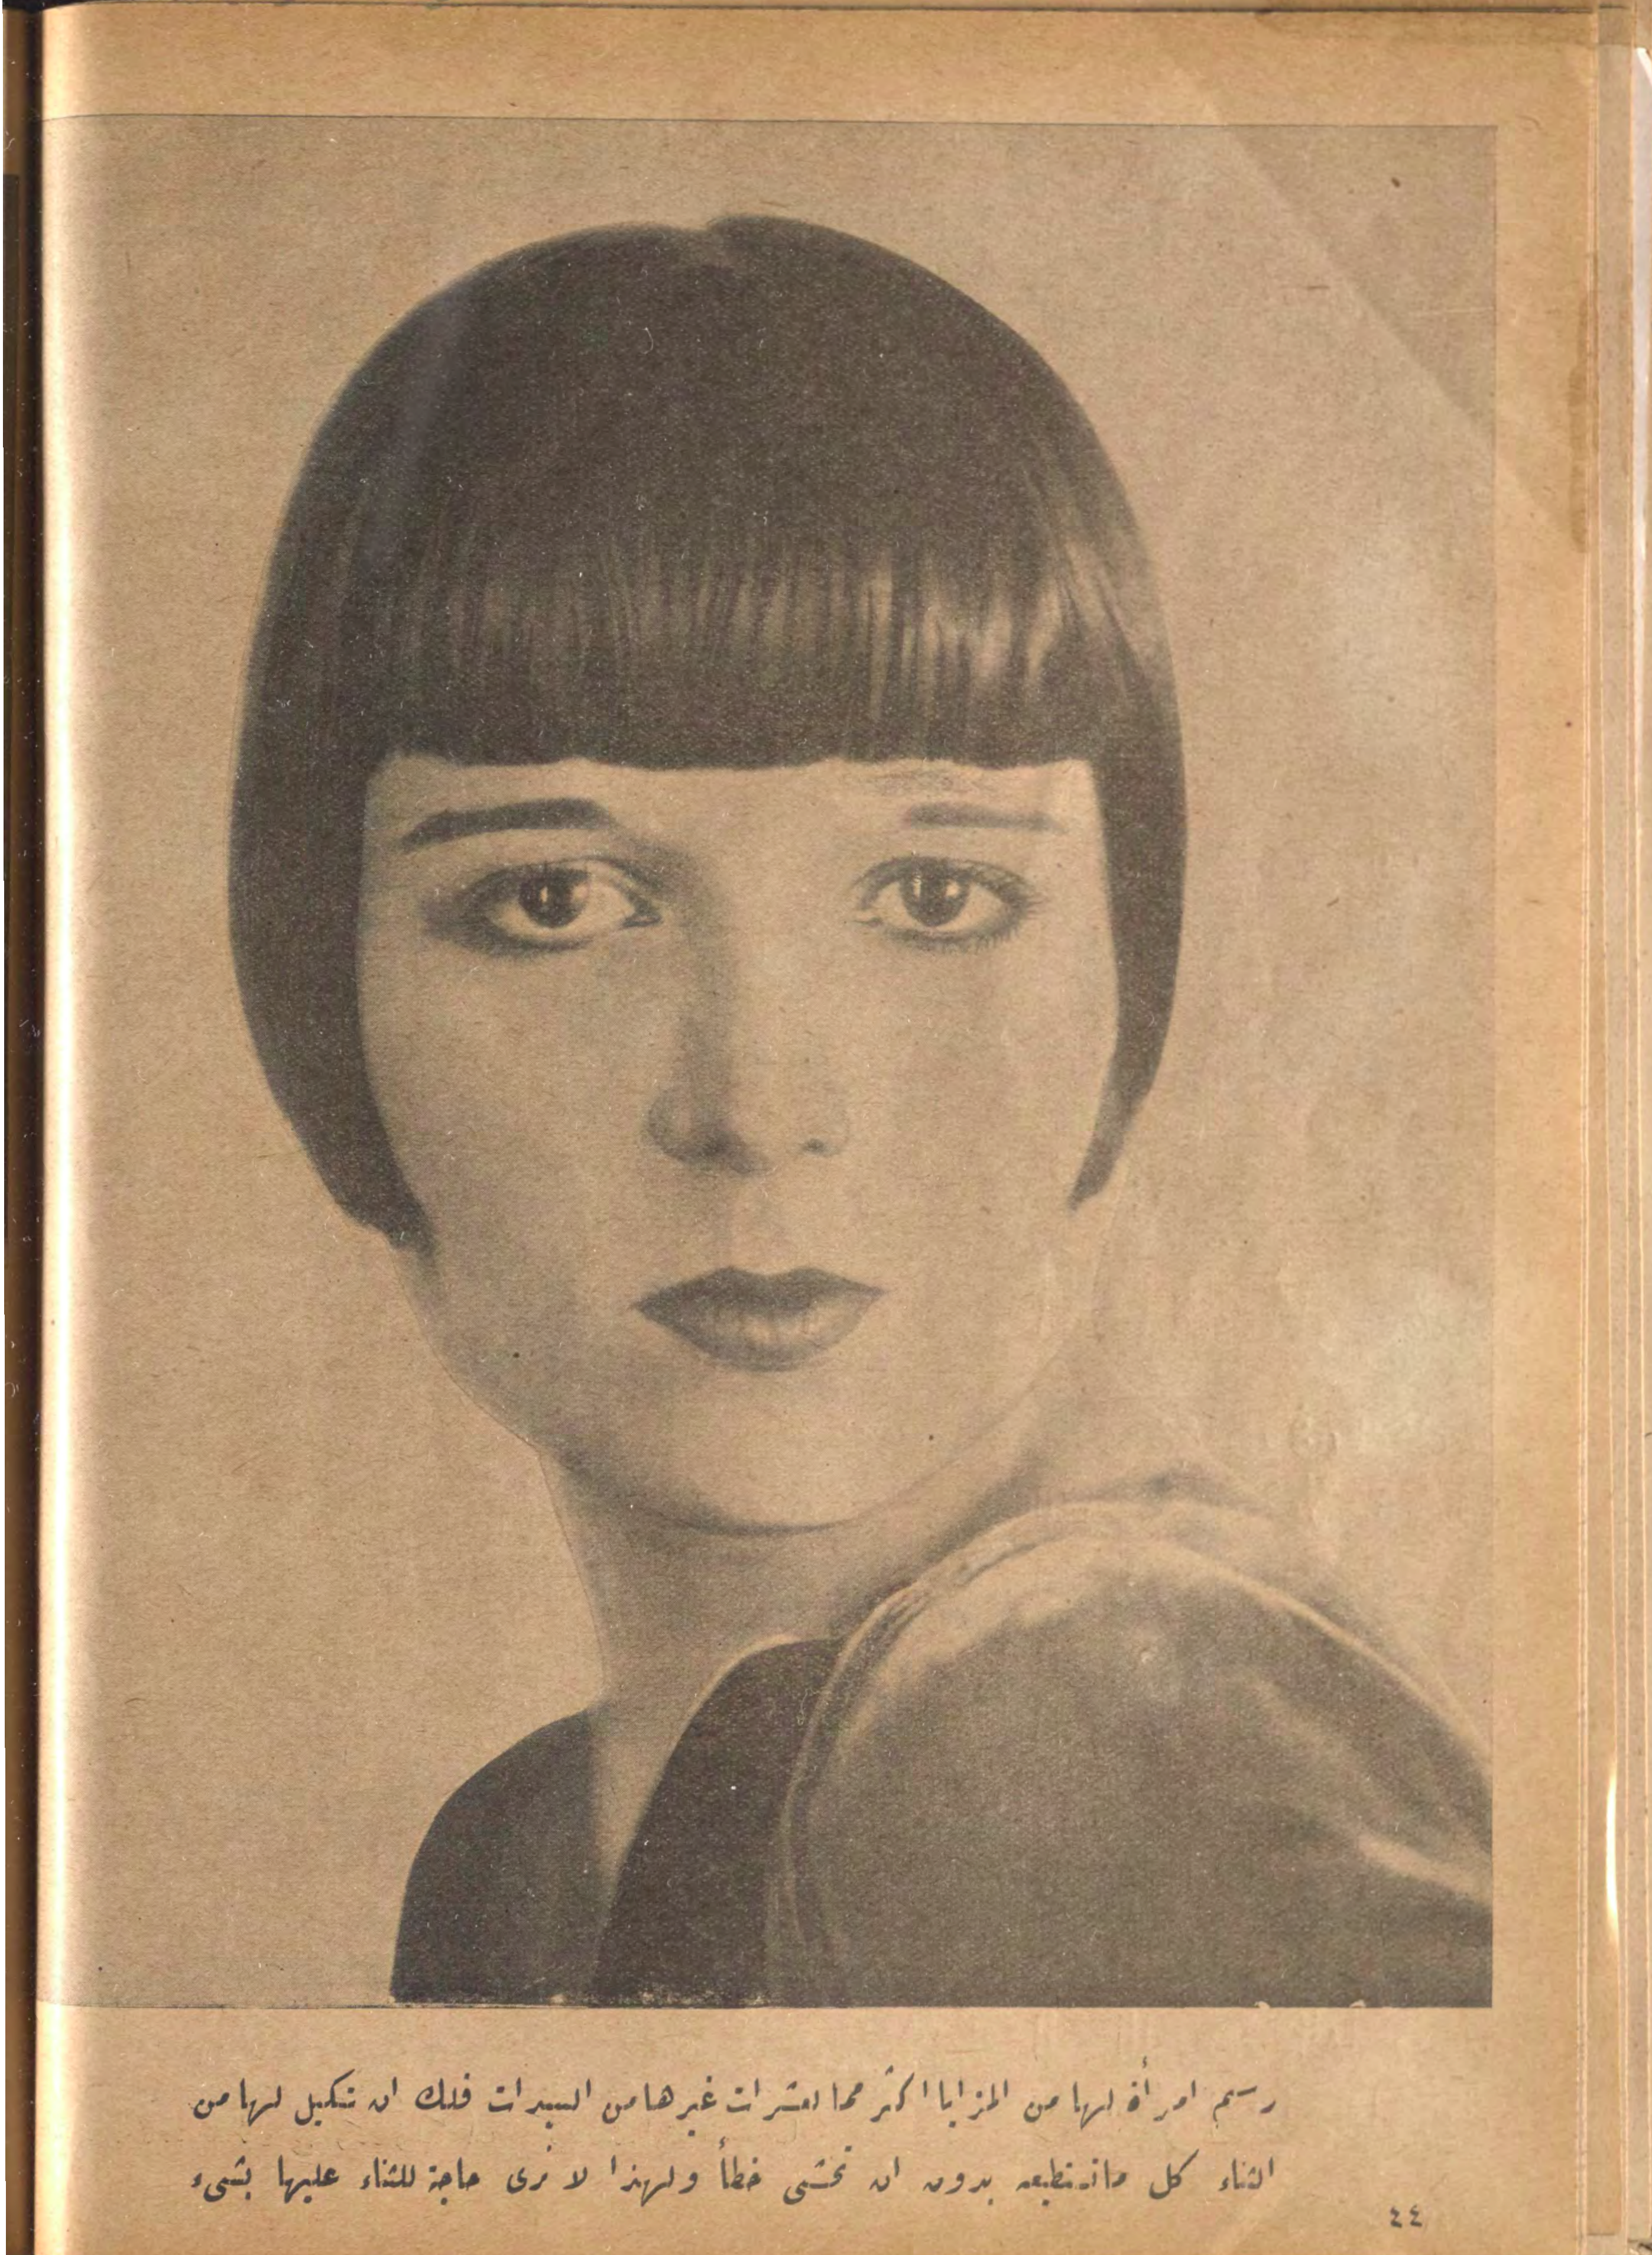 رسم امرأة لها من المزايا اكثر مما لعشرات غيرها من السيدات فلك ان تكيل لها من
الثناء كل ما تستطيعه بدون ان تخشى خطأ ولهذا لا نرى حاجة للثناء عليها بشيء
٤٤